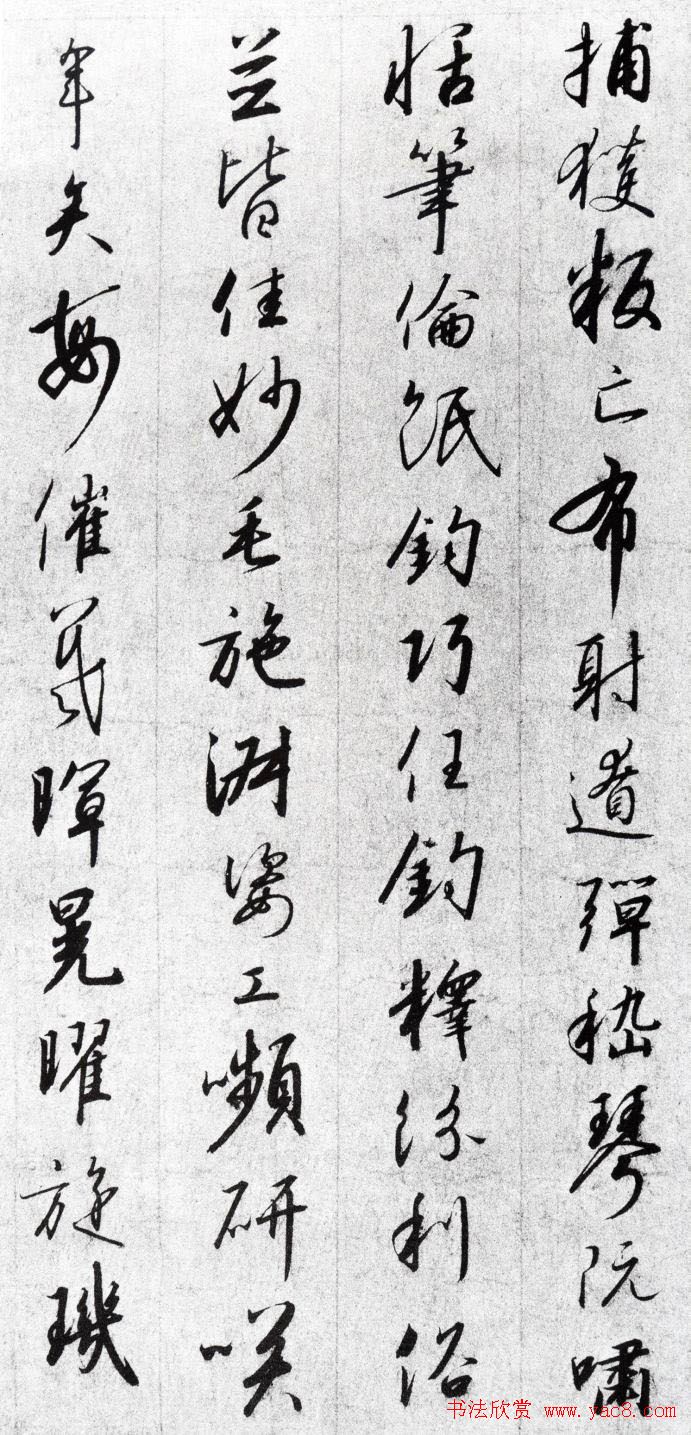 捕獲叛亡布射遼彈嵇琴阮嘯
恬筆倫紙鈞巧任鈞釋紛利俗
並皆佳妙毛施淑姿工嚬研笑
年矢每催羲暉晃曜旋璣
书法欣赏 www.yac8.com